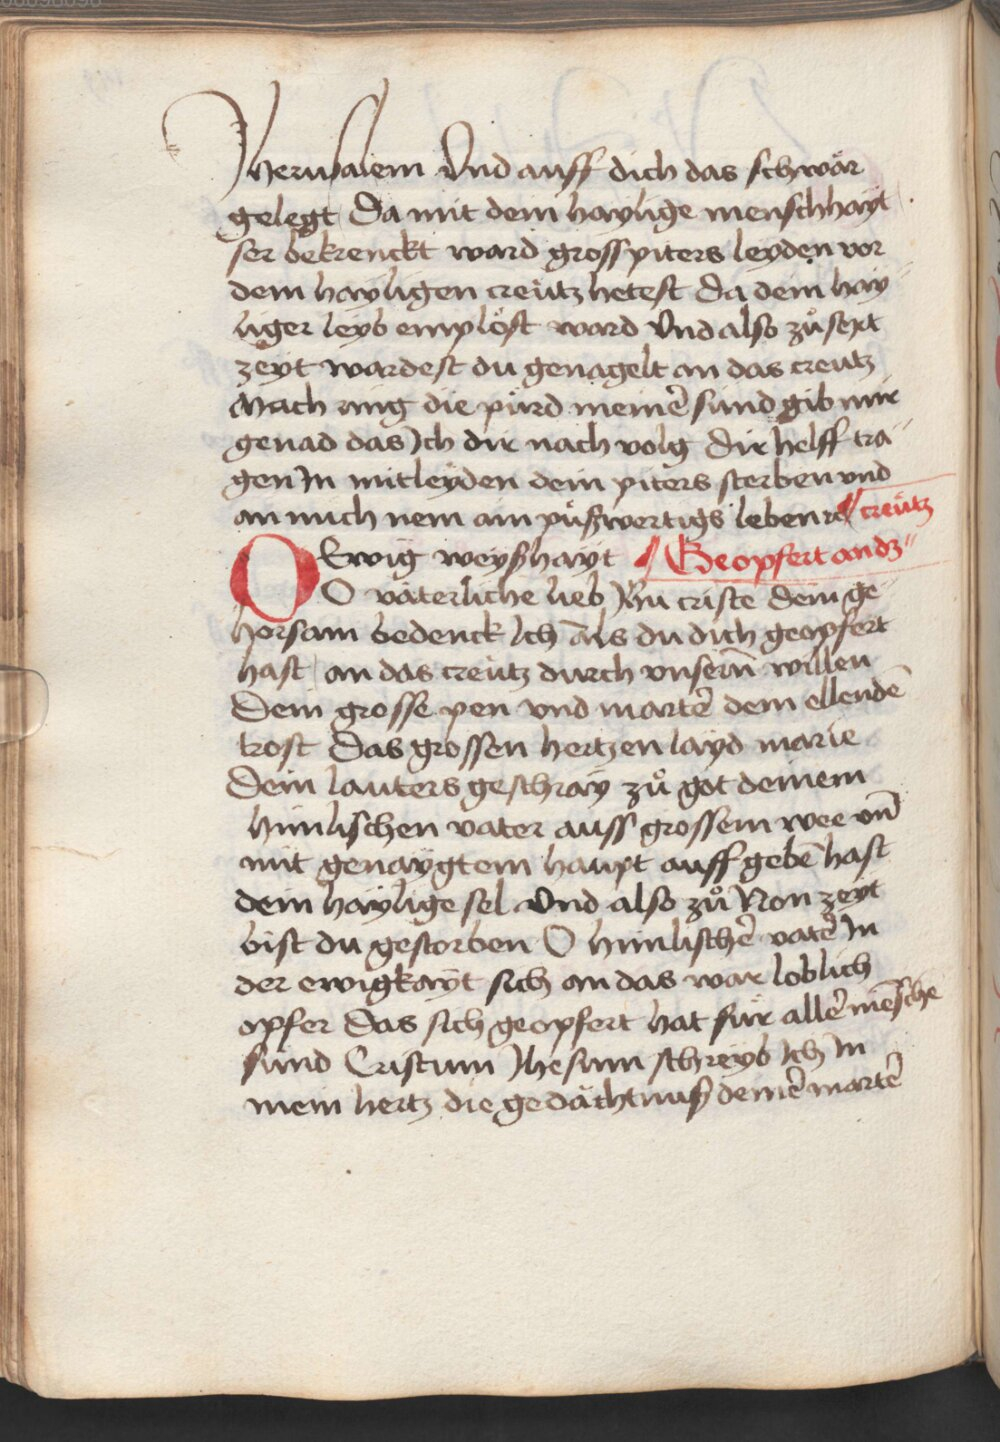 Jherusalem Vnd auff dich das schwär
gelegt Da mit dein haylige menschhayt
ser bekrenckt ward gross piters leyden vor
dem hayligen creütz hetest Da dein hay
liger leyb emplöst ward Vnd also zů sext
zeyt wardest du genagelt an das creutz
Mach ring die pürd meinē sünd gib mir
genad das Ich dir nach volg dir helff tra
gen In mitleyden dein piters sterben vnd
an mich nem ain půßwertigs leben rc̄ creütz
O Ewig weyßhayt Geopfert an dz
O väterliche lieb Jħu criste dein ge
horsam bedenck Ich Als du dich geopfert
hast an das creütz durch vnsern̄ willen
Dein grosse pen vnd martē dem ellendē
trost Das grossen hertzen layd marie
Dein lauters geschray zů got deinem
himlischen vater auss grossem wee vn̄
mit genaygtem haupt auff gebē hast
dein haylige sel Vnd also zů Non zeyt
bist du gestorben O himlischē vatē In
der ewigkayt sich an das war loblich
opfer Das sich geopfert hat für allē mēsche
sünd Cristum Jhesum schreyb Ich In
mein hertz die gedächtnuß deinē martē